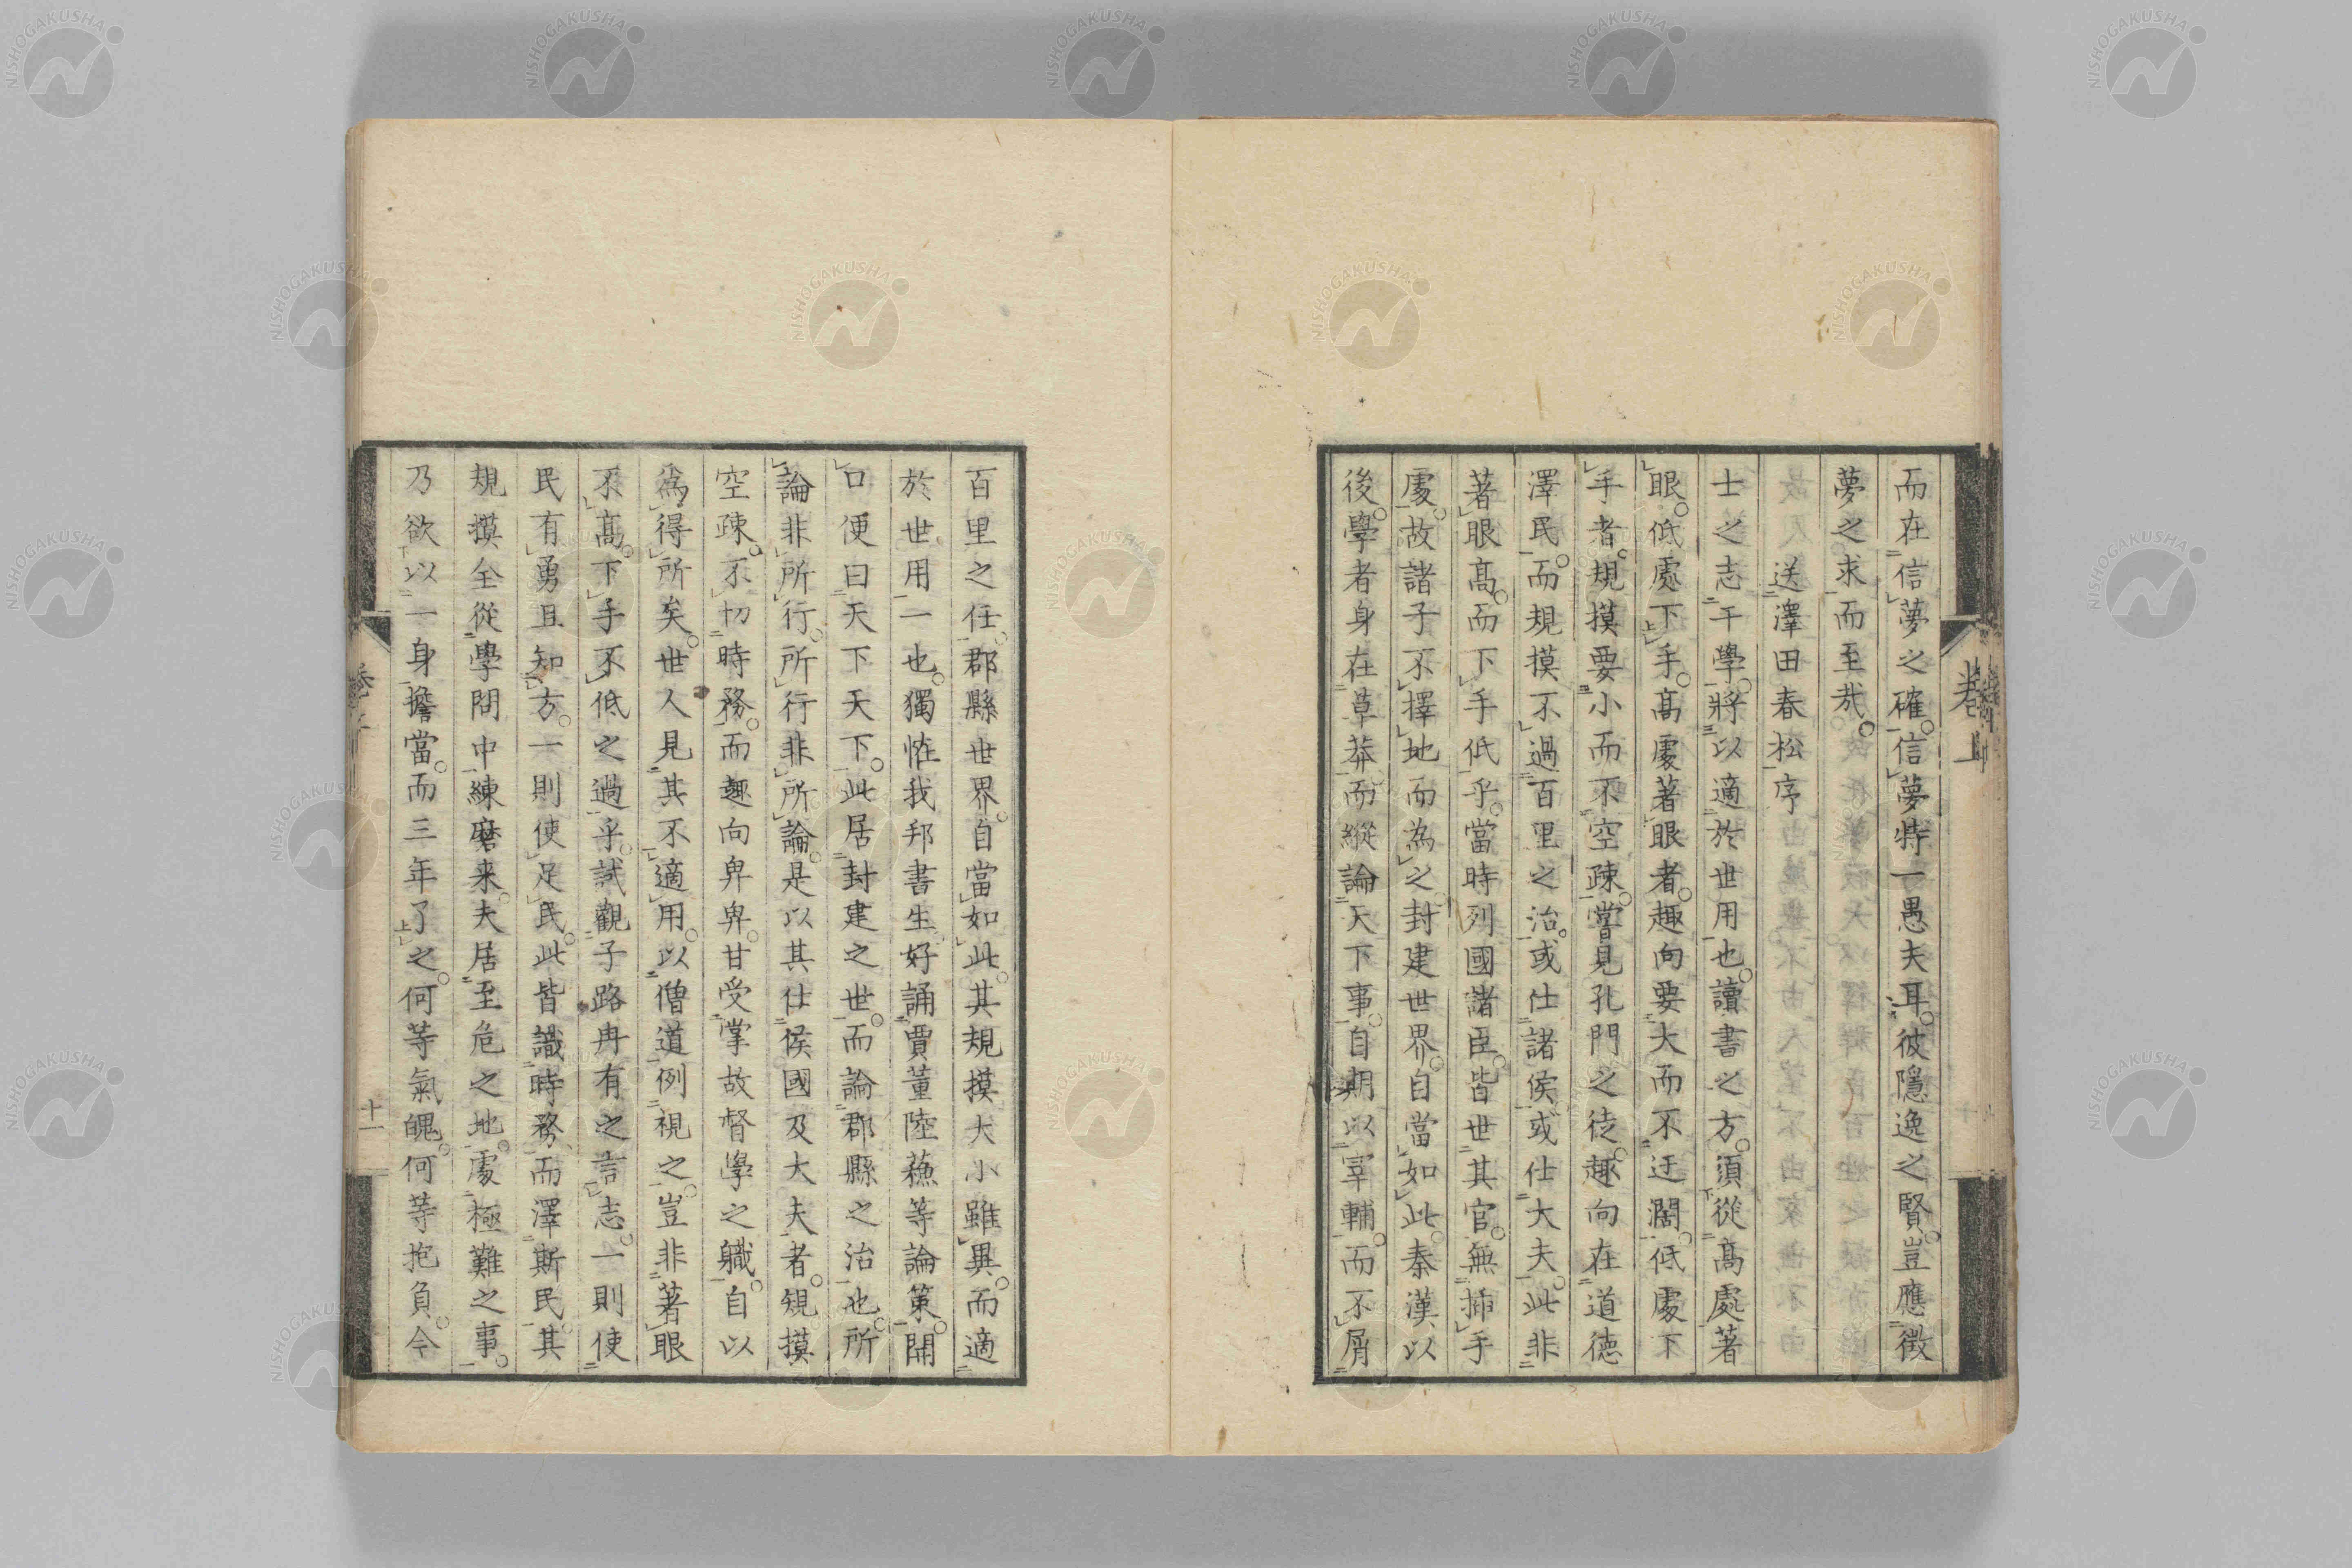 而在信夢之確。信夢特一愚夫耳。彼隱逸之賢。豈應徴
夢之求而至哉。
送澤田春松序
士之志于學。將以適於世用也。讀書之方。須從髙處著
眼。低處下手。髙處著眼者。趣向要大而不迂濶。低處下
手者。規摸要小而不空疎。嘗見孔門之徒。趣向在道德
澤民。而規摸不過百里之治。或仕諸侯。或仕大夫。此非
著眼髙。而下手低乎。當時列國諸臣。皆世其官。無揷手
處。故諸子不擇地而為之。封建世界。自當如此。秦漢以
後。學者身在草莽。而縱論天下事。自期以宰輔。而不屑
百里之任。郡縣世界。自當如此。其規摸大小雖異。而適
於世用一也。獨恠我邦書生。好誦賈董陸蘓等論策。開
口便曰天下天下。此居封建之世。而論郡縣之治也。所
論非所行。所行非所論。是以其仕侯國及大夫者。規摸
空疎。不切時務。而趣向卑卑。甘受掌故督學之職。自以
為得所矣。世人見其不適用。以僧道例視之。豈非著眼
不髙。下手不低之過乎。試觀子路冉有之言志。一則使
民有勇且知方。一則使足民。此皆識時務。而澤斯民。其
規摸全從學問中練磨来。夫居至危之地。處極難之事。
乃欲以一身擔當。而三年了之。何等氣魄。何等抱負。今
卷上
十一
NISHOGAKUSHA